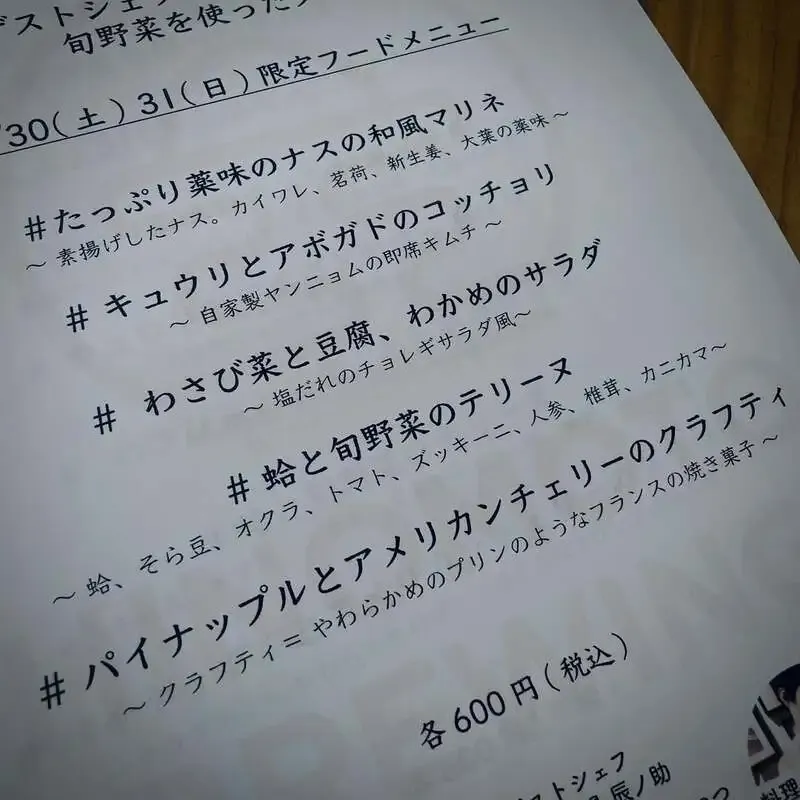 ゲストシェフ
旬野菜を使った
30(土)31(日)限定フードメニュー
#たっぷり薬味のナスの和風マリネ
~ 素揚げしたナス。カイワレ、茗荷、新生姜、大葉の薬味 ~
# キュウリとアボガドのコッチョリ
~ 自家製ヤンニョムの即席キムチ ~
# わさび菜と豆腐、わかめのサラダ
~ 塩だれのチョレギサラダ風~
# 蛤と旬野菜のテリーヌ
~ 蛤、そら豆、オクラ、トマト、ズッキーニ、人参、椎茸、カニカマ~
# パイナップルとアメリカンチェリーのクラフティ
~ クラフティ= やわらかめのプリンのようなフランスの焼き菓子 ~
各600円(税込)
ストシェフ
辰ノ助
料理